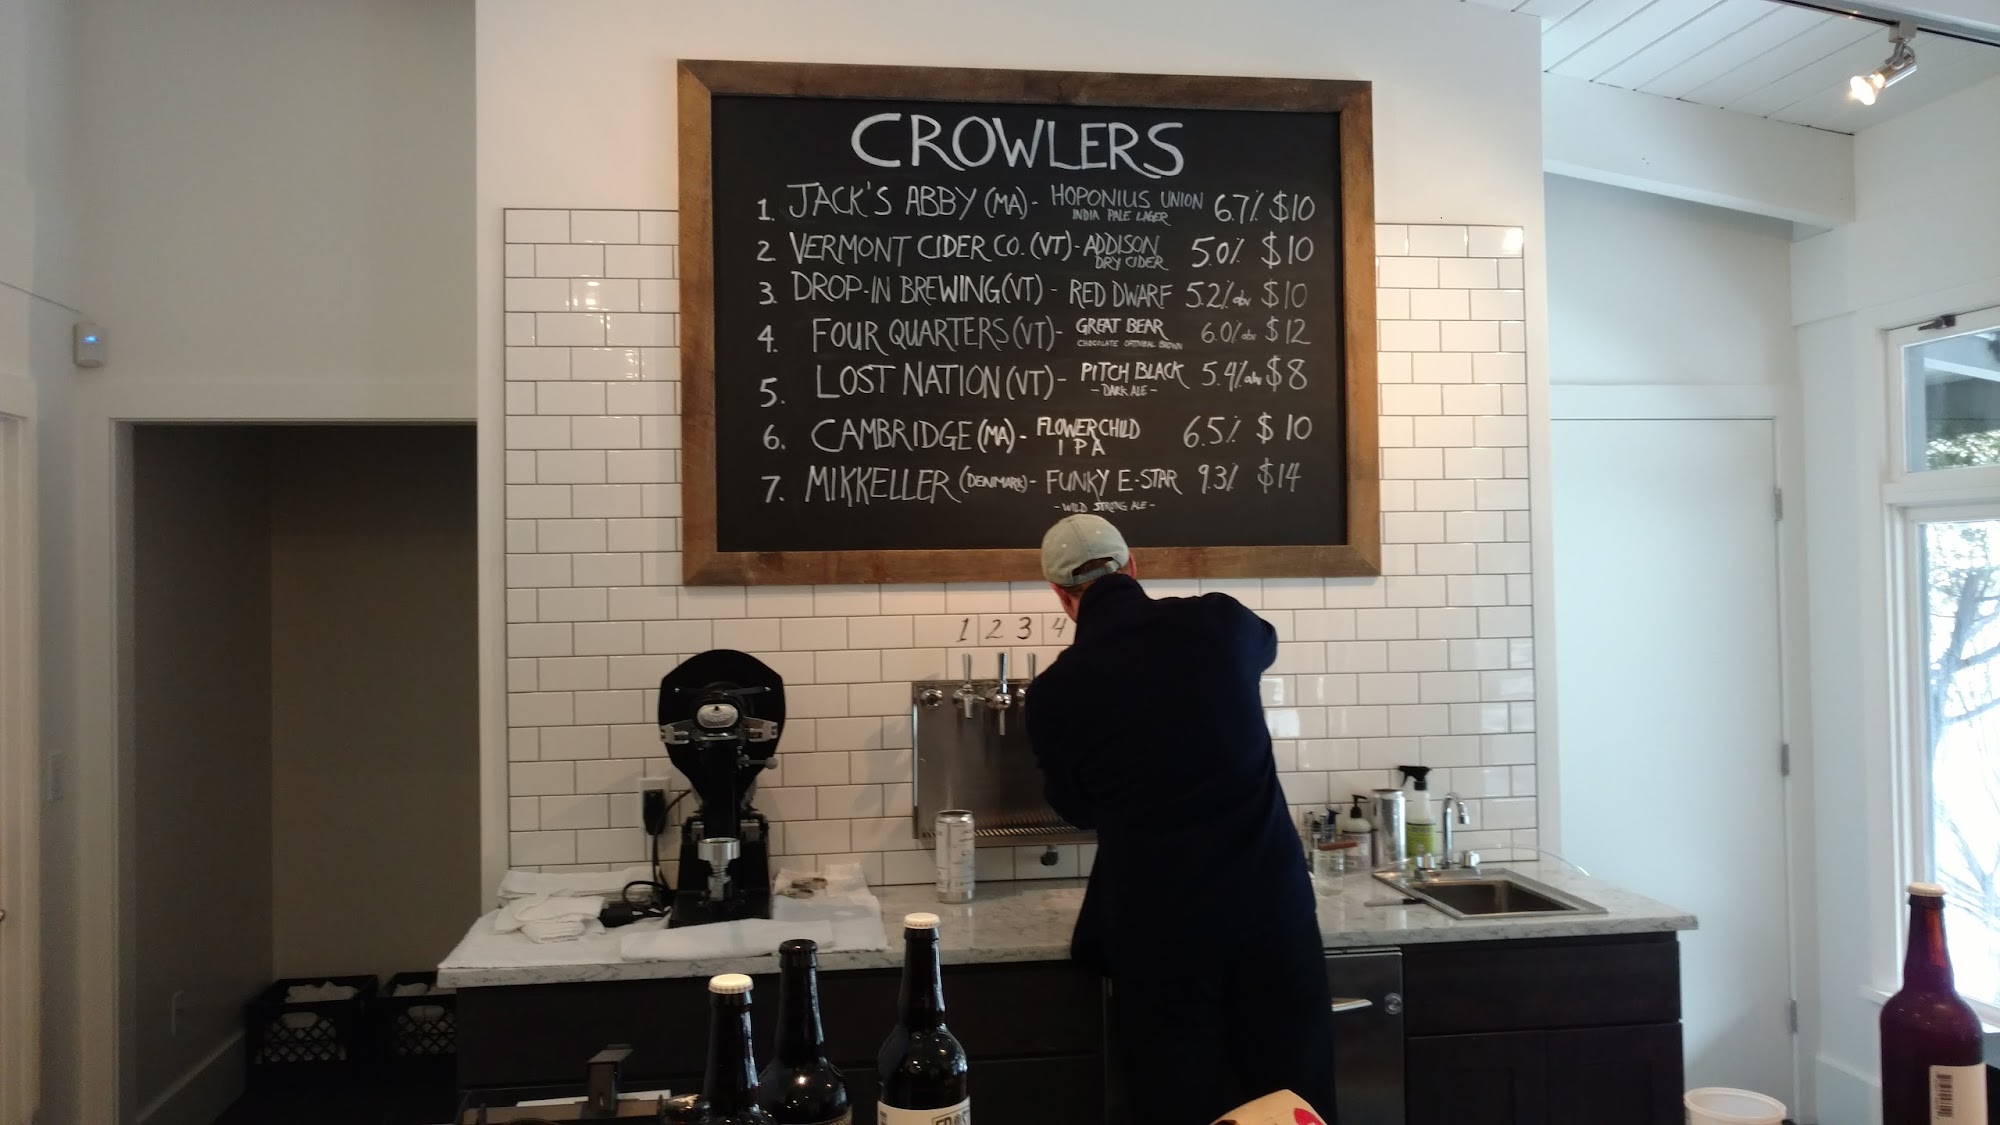 CROWLERS
1. JACK'S ABBY (MA) - HOPONIUS UNION 6.7% $10
INDIA PALE LAGER
2. VERMONT CIDER CO. (VT) - ADDISON 5.0% $10
DRY CIDER
3. DROP-IN BREWING (VT) - RED DWARF 5.2% abv $10
4. FOUR QUARTERS (VT) - GREAT BEAR 6.0% abv $12
CHOCOLATE OATMEAL BROWN
5. LOST NATION (VT) - PITCH BLACK 5.4% abv $8
- DARK ALE -
6. CAMBRIDGE (MA) - FLOWER CHILD 6.5% $10
IPA
7. MIKKELLER (DENMARK) - FUNKY E-STAR 9.3% $14
- WILD STRONG ALE -
1 2 3 4